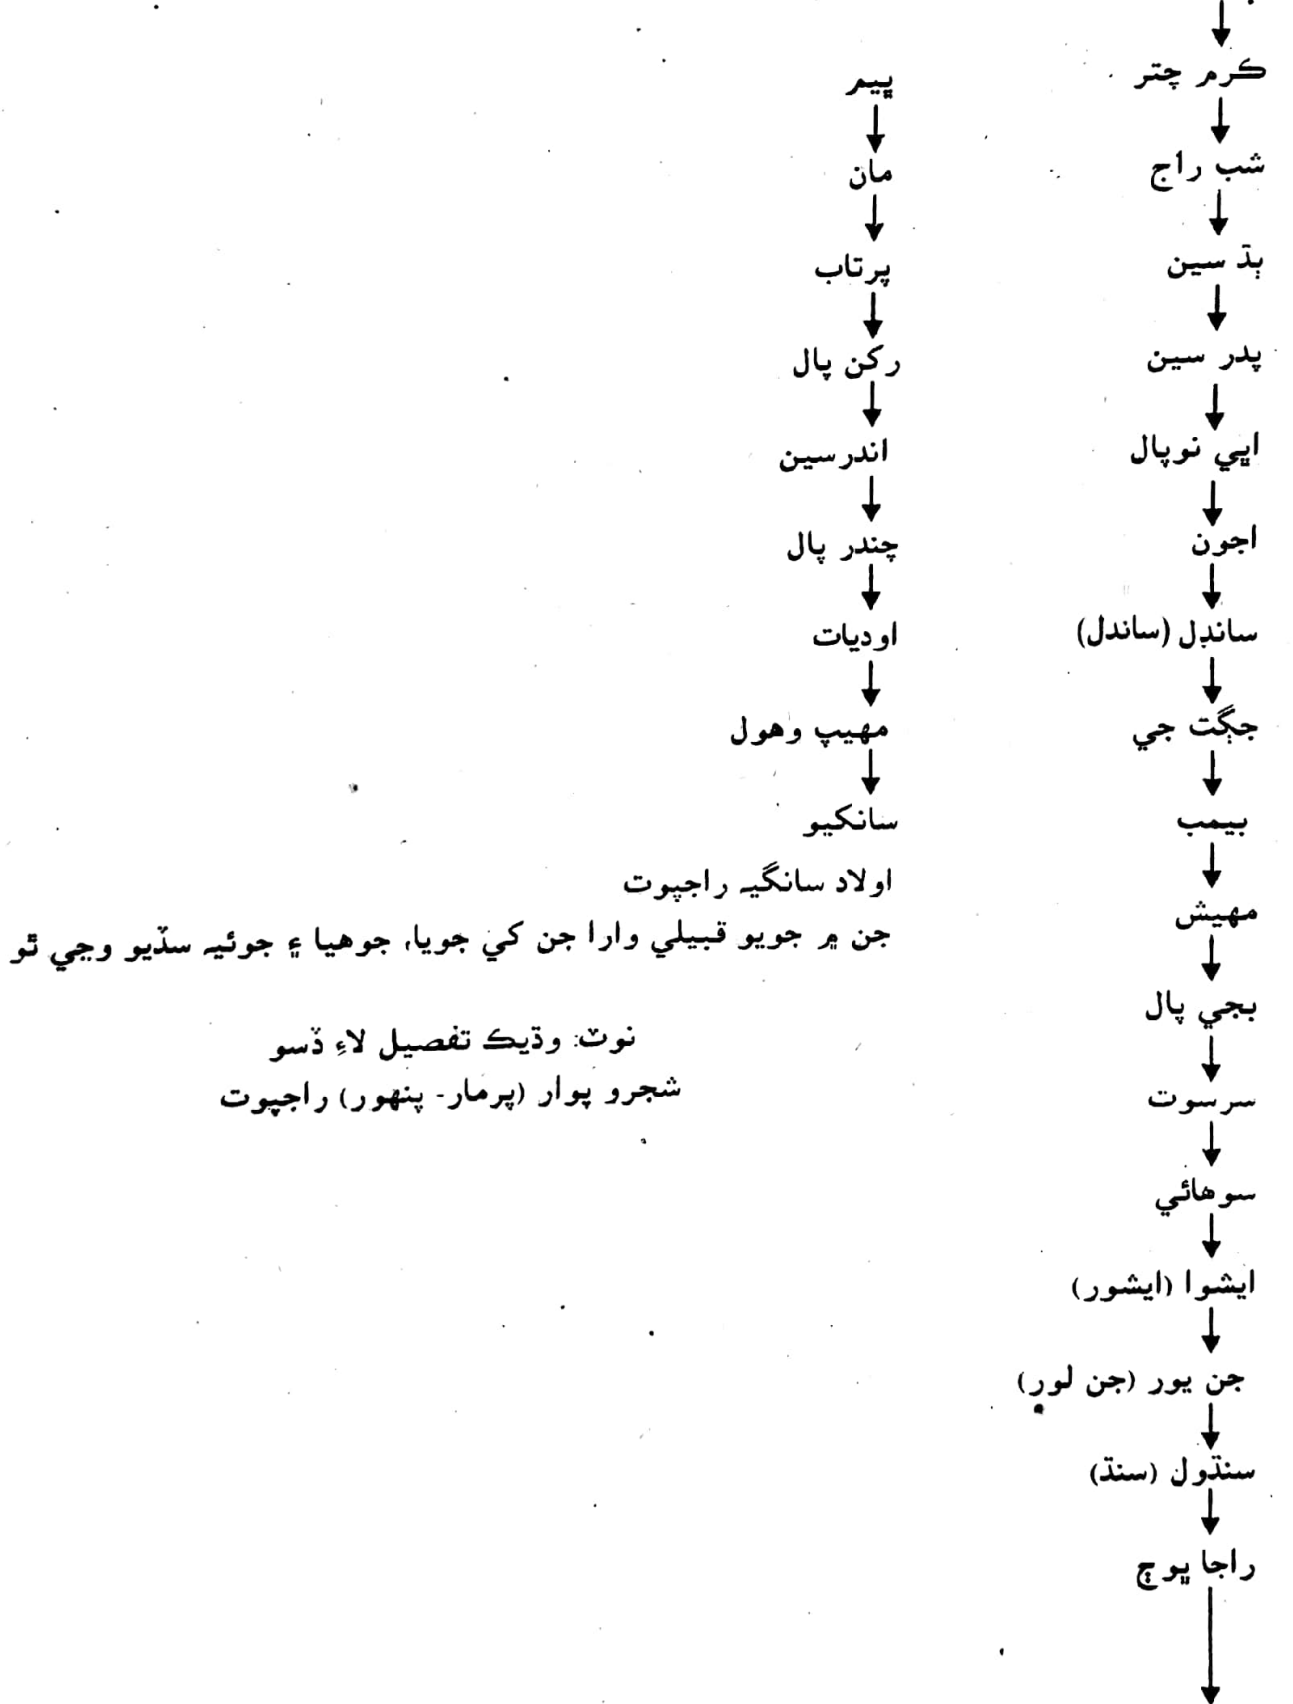 ڪرم چتر
شب راج
ٻڌ سين
پدر سين
اڀي نوپال
اجون
سانڊل (ساندل)
جڳت جي
بيمب
مهيش
بجي پال
سرسوت
سوهائي
ايشوا (ايشور)
جن يور (جن لور)
سنڌول (سنڌ)
راجا ڀوڄ
ڀيم
مان
پرتاب
رکن پال
اندرسين
چندر پال
اوديات
مهيپ وهول
سانکيو
اولاد سانگيه راجپوت
جن ۾ جويو قبيلي وارا جن کي جويا، جوهيا ۽ جوئيه سڏيو وڃي ٿو
نوٽ: وڌيڪ تفصيل لاءِ ڏسو
شجرو پوار (پرمار- پنهور) راجپوت